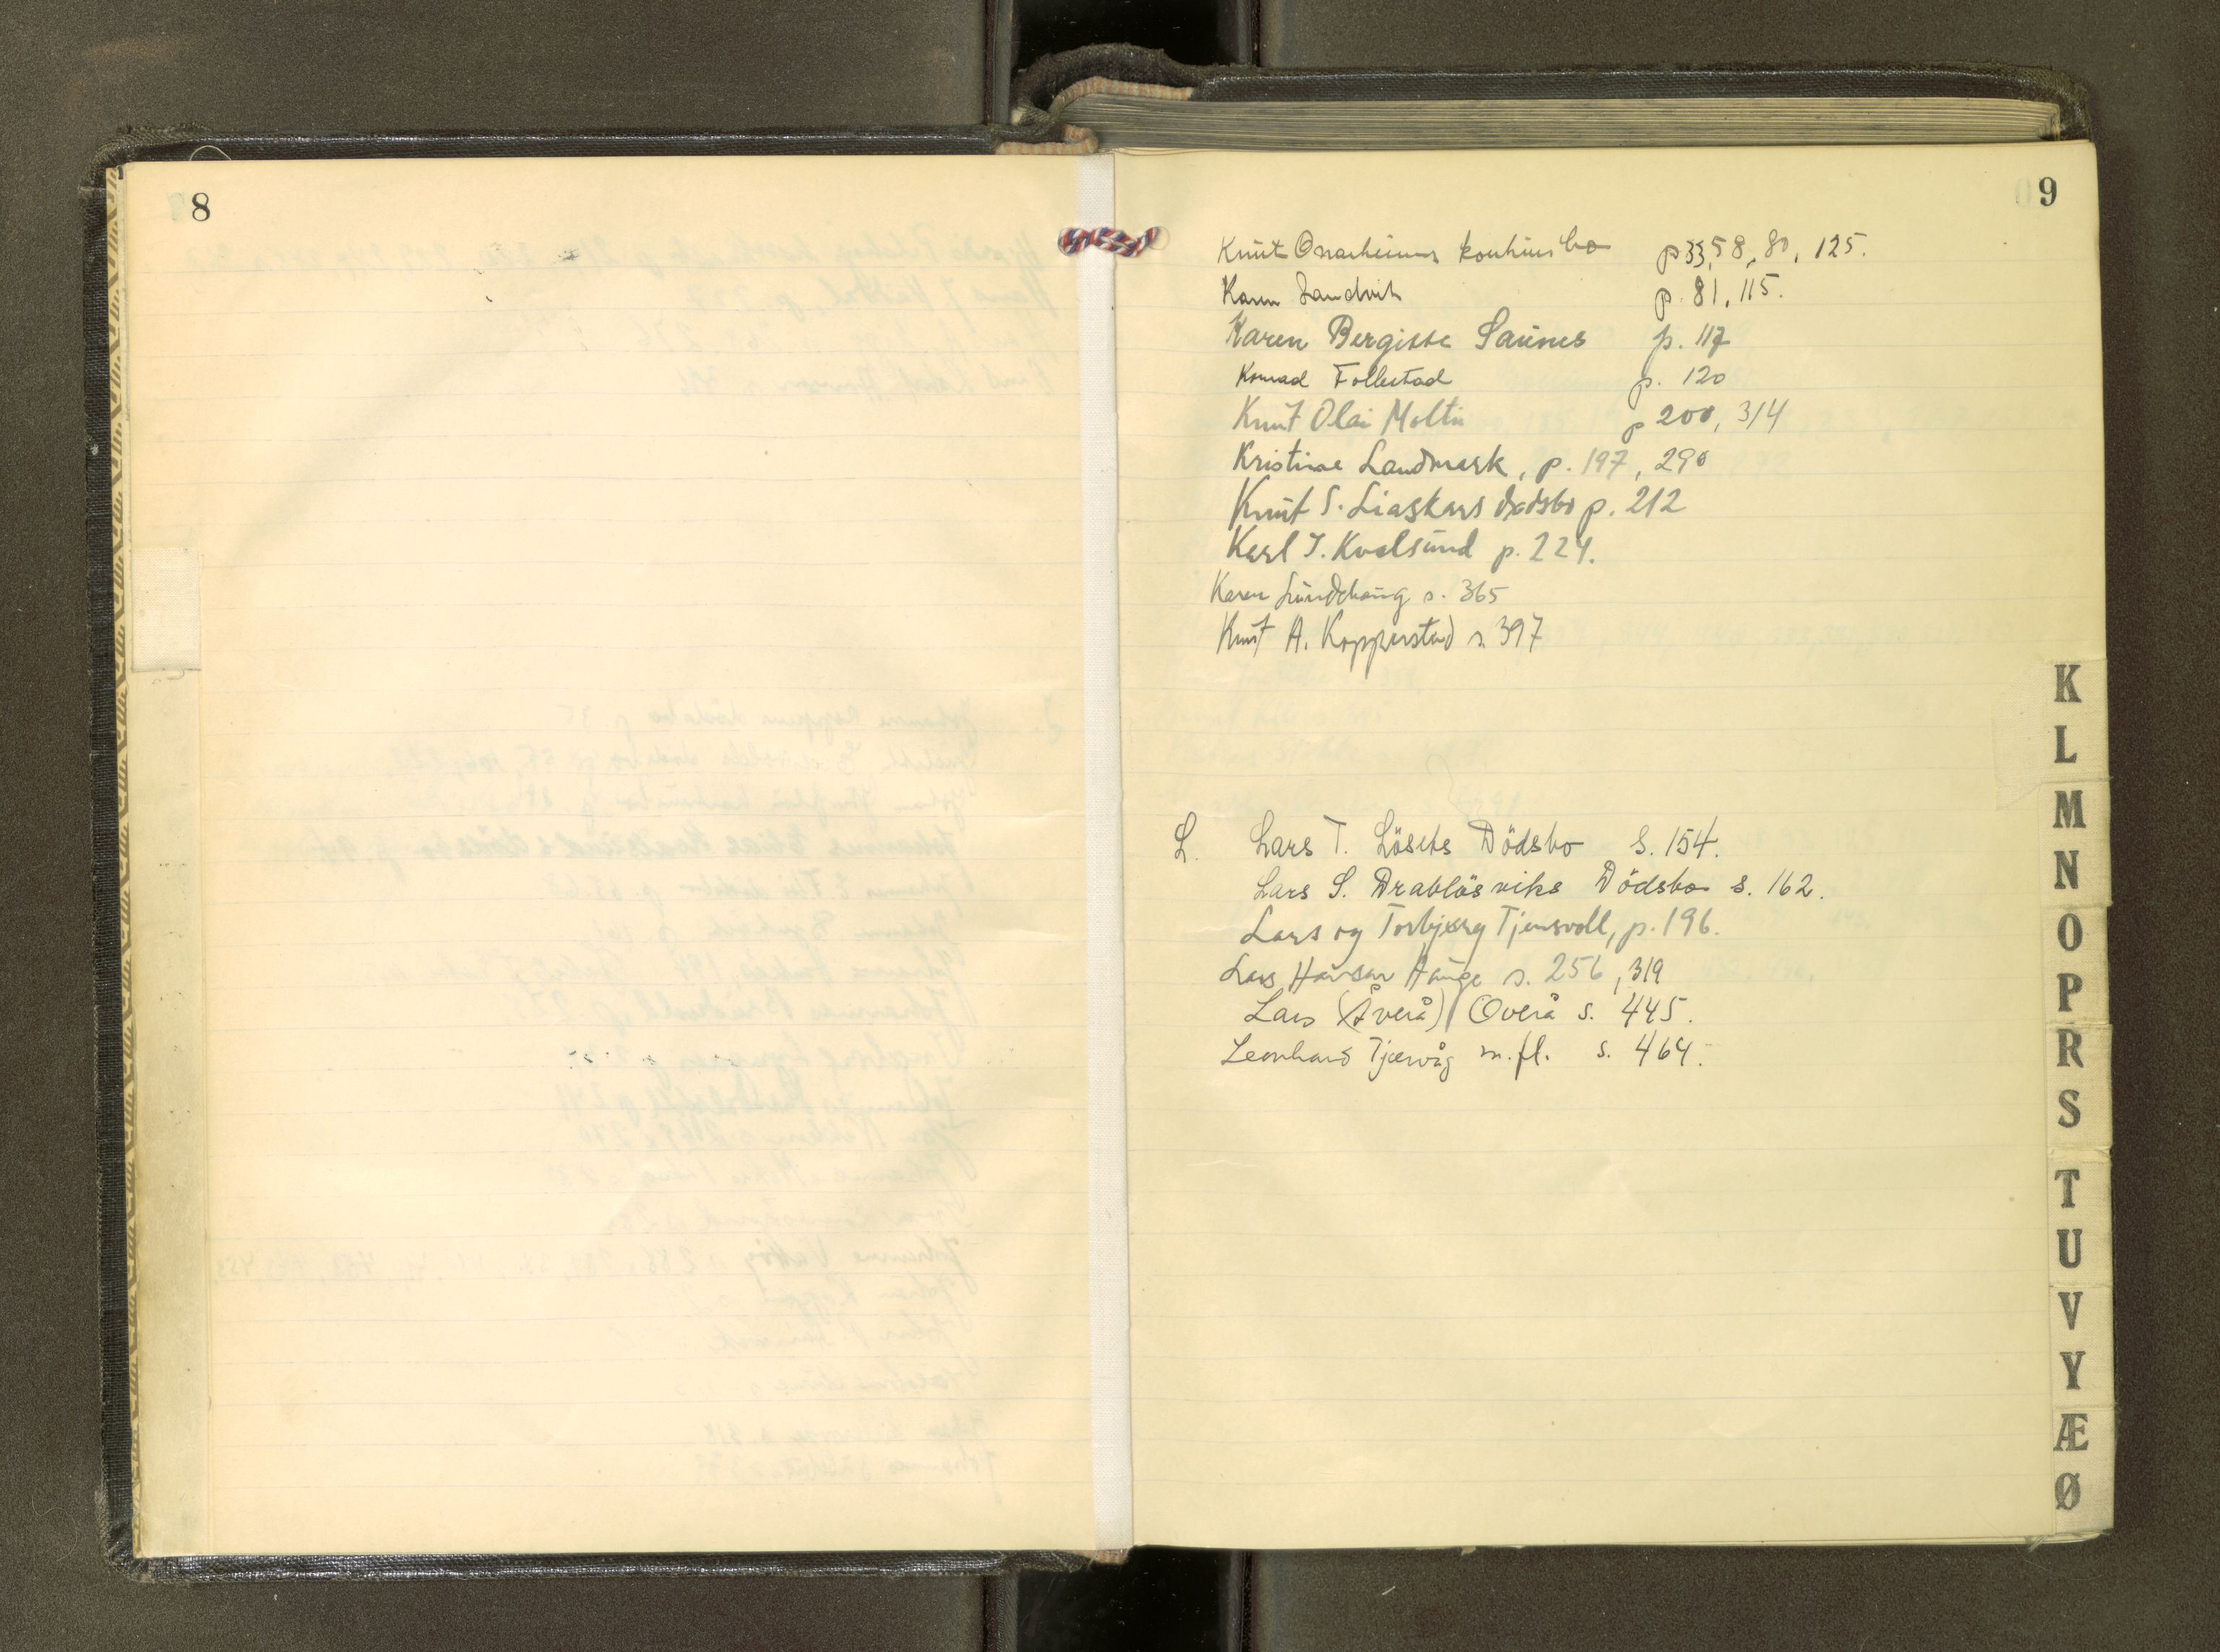 8
9
Knut Onarheims konkursbo p 33, 58, 80, 125.
Karen Sandvik p. 81, 115.
Karen Bergitte Saunes p. 117
Konrad Follestad p. 120
Knut Olai Moltu p 200, 314
Kristine Landmark, p. 197, 290
Knut S. Liaskars dødsbo p. 212
Karl J. Kvalsund p. 224.
Karen Lundehaug s. 365
Knut A. Kopperstad s. 397
L. Lars T. Lösets Dödsbo S. 154.
Lars S. Drablösviks Dödsbo s. 162.
Lars og Torbjørg Tjensvoll, p. 196.
Lars Hauge s. 256, 319
Lars (Åverå) Overå s. 445.
Leonhard Tjervåg m.fl. s. 464.
K
L
M
N
O
P
R
S
T
U
V
Y
Æ
Ø